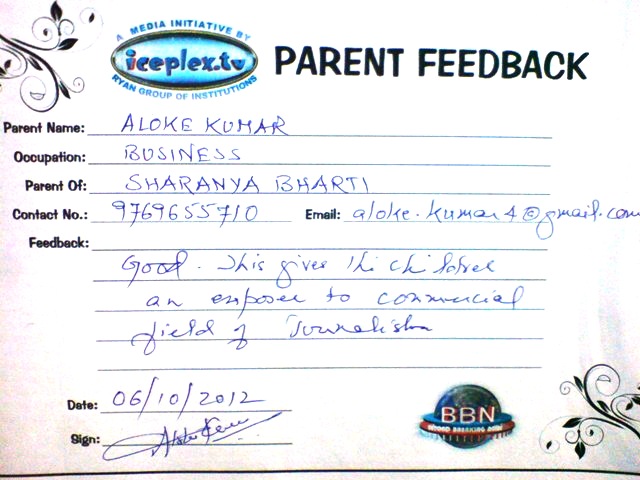 A MEDIA INITIATIVE BY
iceplex.tv
RYAN GROUP OF INSTITUTIONS
PARENT FEEDBACK
Parent Name: ALOKE KUMAR
Occupation: BUSINESS
Parent Of: SHARANYA BHARTI
Contact No.: 9769655710 Email: aloke.kumar4@gmail.com
Feedback:
Good. This gives the children
an exposer to commercial
field of Journalism
Date: 06/10/2012
Sign:
BBN
BEYOND BREAKING NEWS